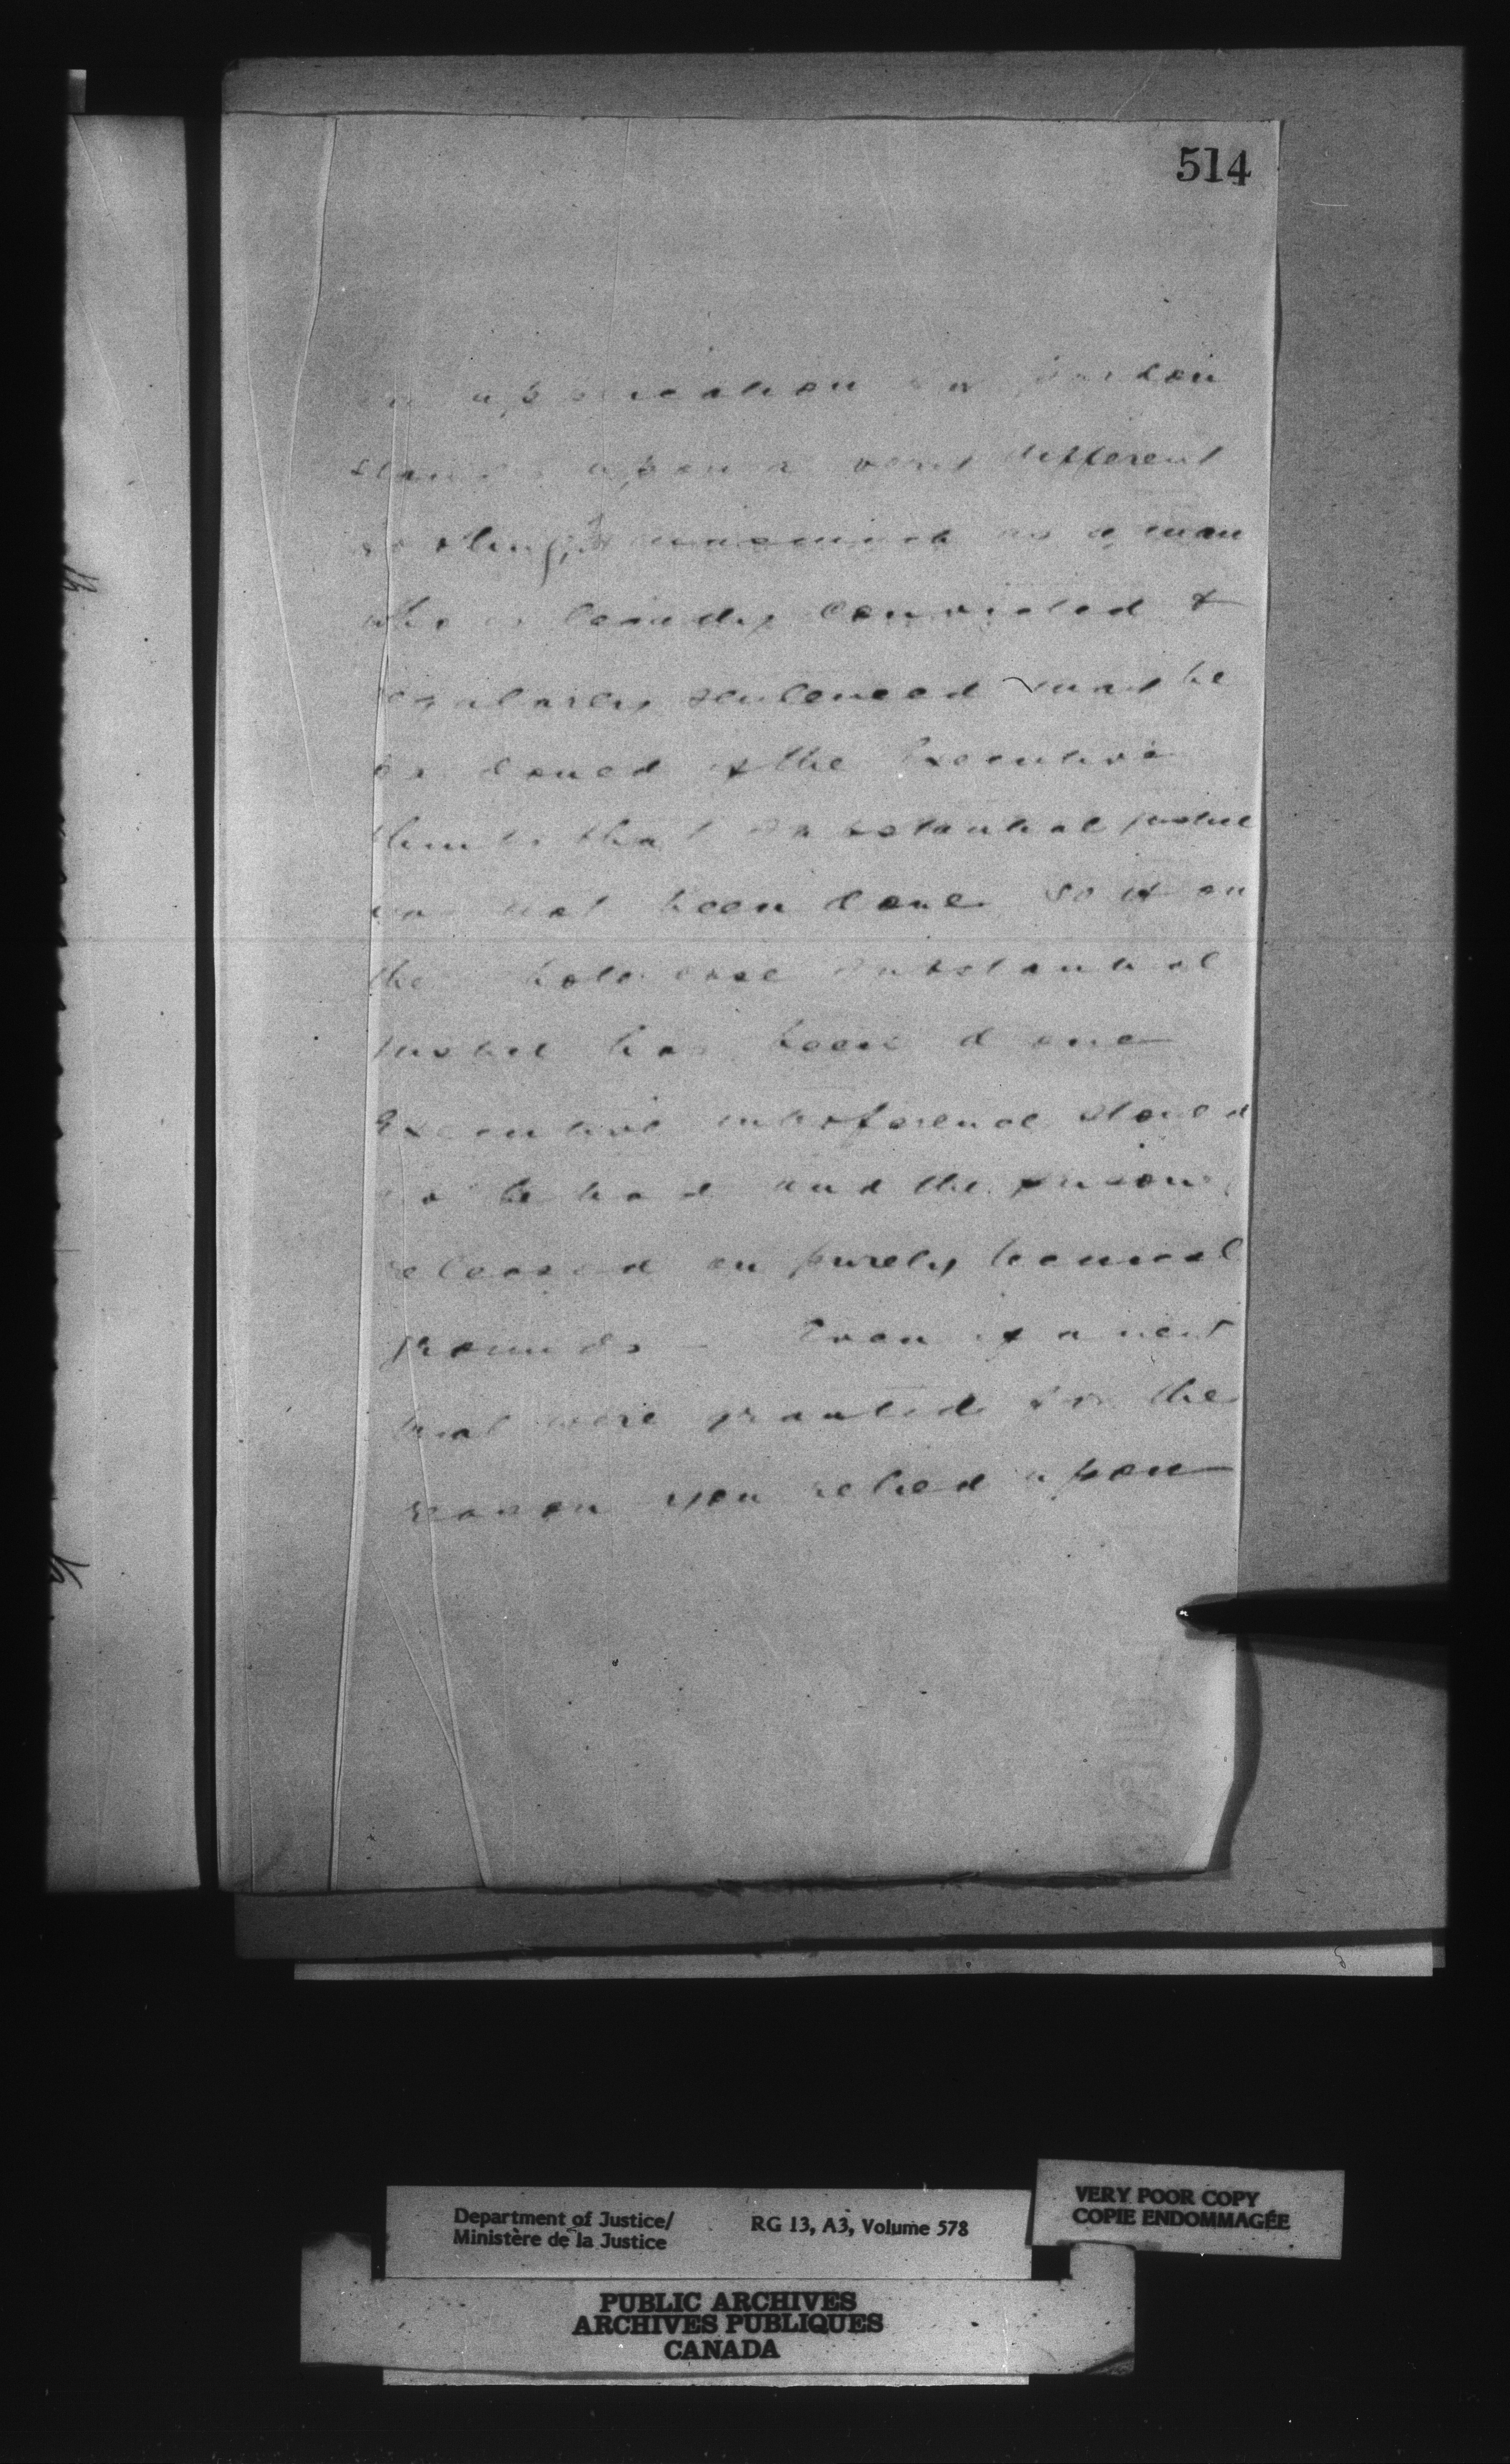 514
an application for pardon
stands upon a very different
footing, inasmuch as a man
who is legally convicted &
regularly sentenced may be
pardoned if the Executive
thinks that substantial justice
has not been done so if on
the whole case substantial
justice has been done
Executive interference should
not be had and the prisoner
released on purely technical
grounds — Even if a new
trial were granted for the
reason you relied upon
Department of Justice/
Ministère de la Justice
RG 13, A3, Volume 578
VERY POOR COPY
COPIE ENDOMMAGÉE
PUBLIC ARCHIVES
ARCHIVES PUBLIQUES
CANADA